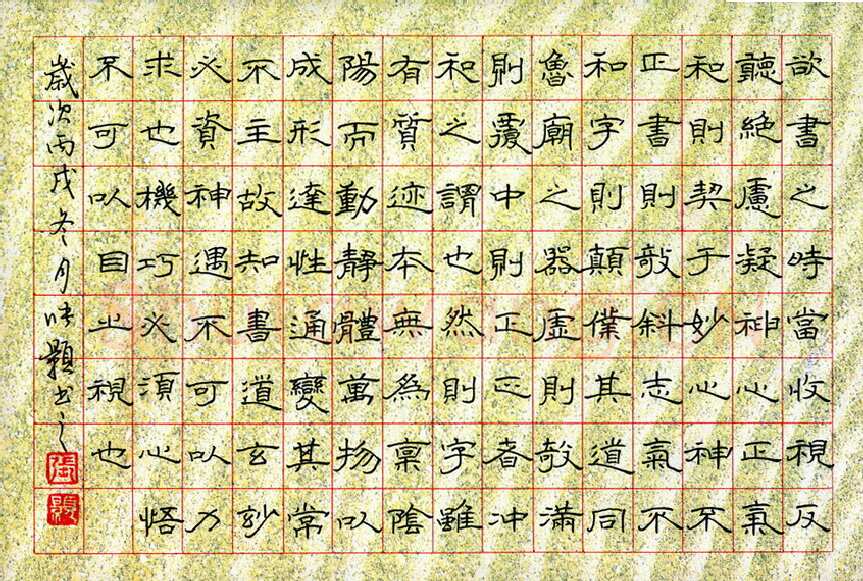 欲書之時當收視反
聽絕慮凝神心正氣
和則契于妙心神不
正書則敧斜志氣不
和字則顛僕其道同
魯廟之器虛則敧滿
則覆中則正正者沖
和之謂也然則字雖
有質迹本無為稟陰
陽而動靜體萬物以
成形達性通變其常
不主故知書道玄妙
必資神遇不可以力
求也機巧必須心悟
不可以目止視也
歲次丙戌冬月張書之
張